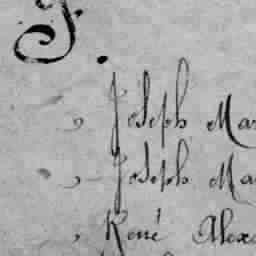 J.
, Joseph Mar
, Joseph Ma
, René Alex